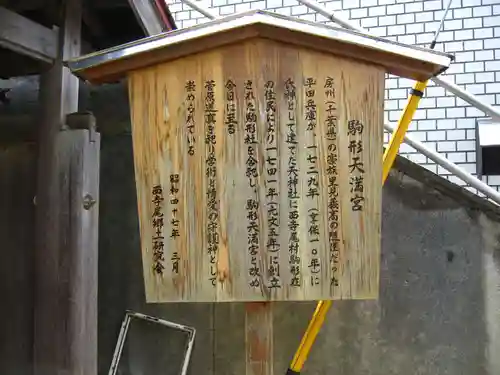 駒形天満宮
房州(千葉県)の豪族里見義高の照臣だった
平田兵庫が、一七二九年(享保一〇年)に
氏神として建てた天神社に西寺尾村駒形荘
の住民により一七四一年(元文五年)に創立
された駒形社を合祀し、駒形天満宮と改め
今日に至る
菅原道真を祀り学術と情愛の守護神として
崇められている
昭和四十七年 三月
西寺尾郷土研究会